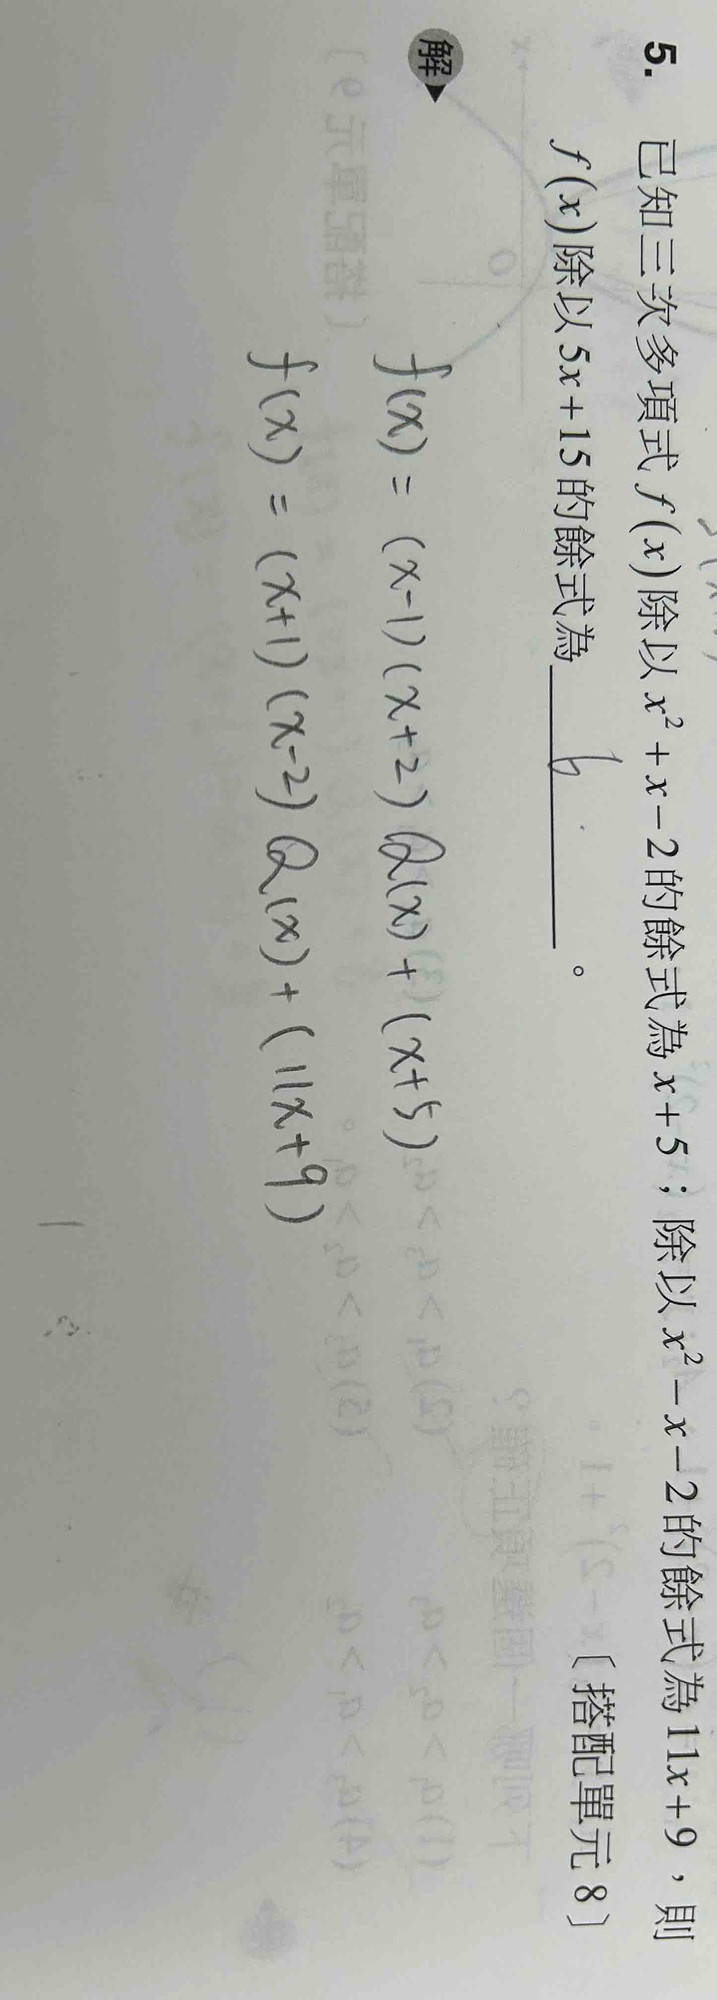 5. 已知三次多項式 f(x) 除以 x²+x−2 的餘式為 x+5；除以 x²−x−2 的餘式為 11x+9，則
f(x) 除以 5x+15 的餘式為 6 。 〔搭配單元 8〕
解
f(x) = (x-1)(x+2) Q(x) + (x+5)
f(x) = (x+1)(x-2) Q(x) + (11x+9)